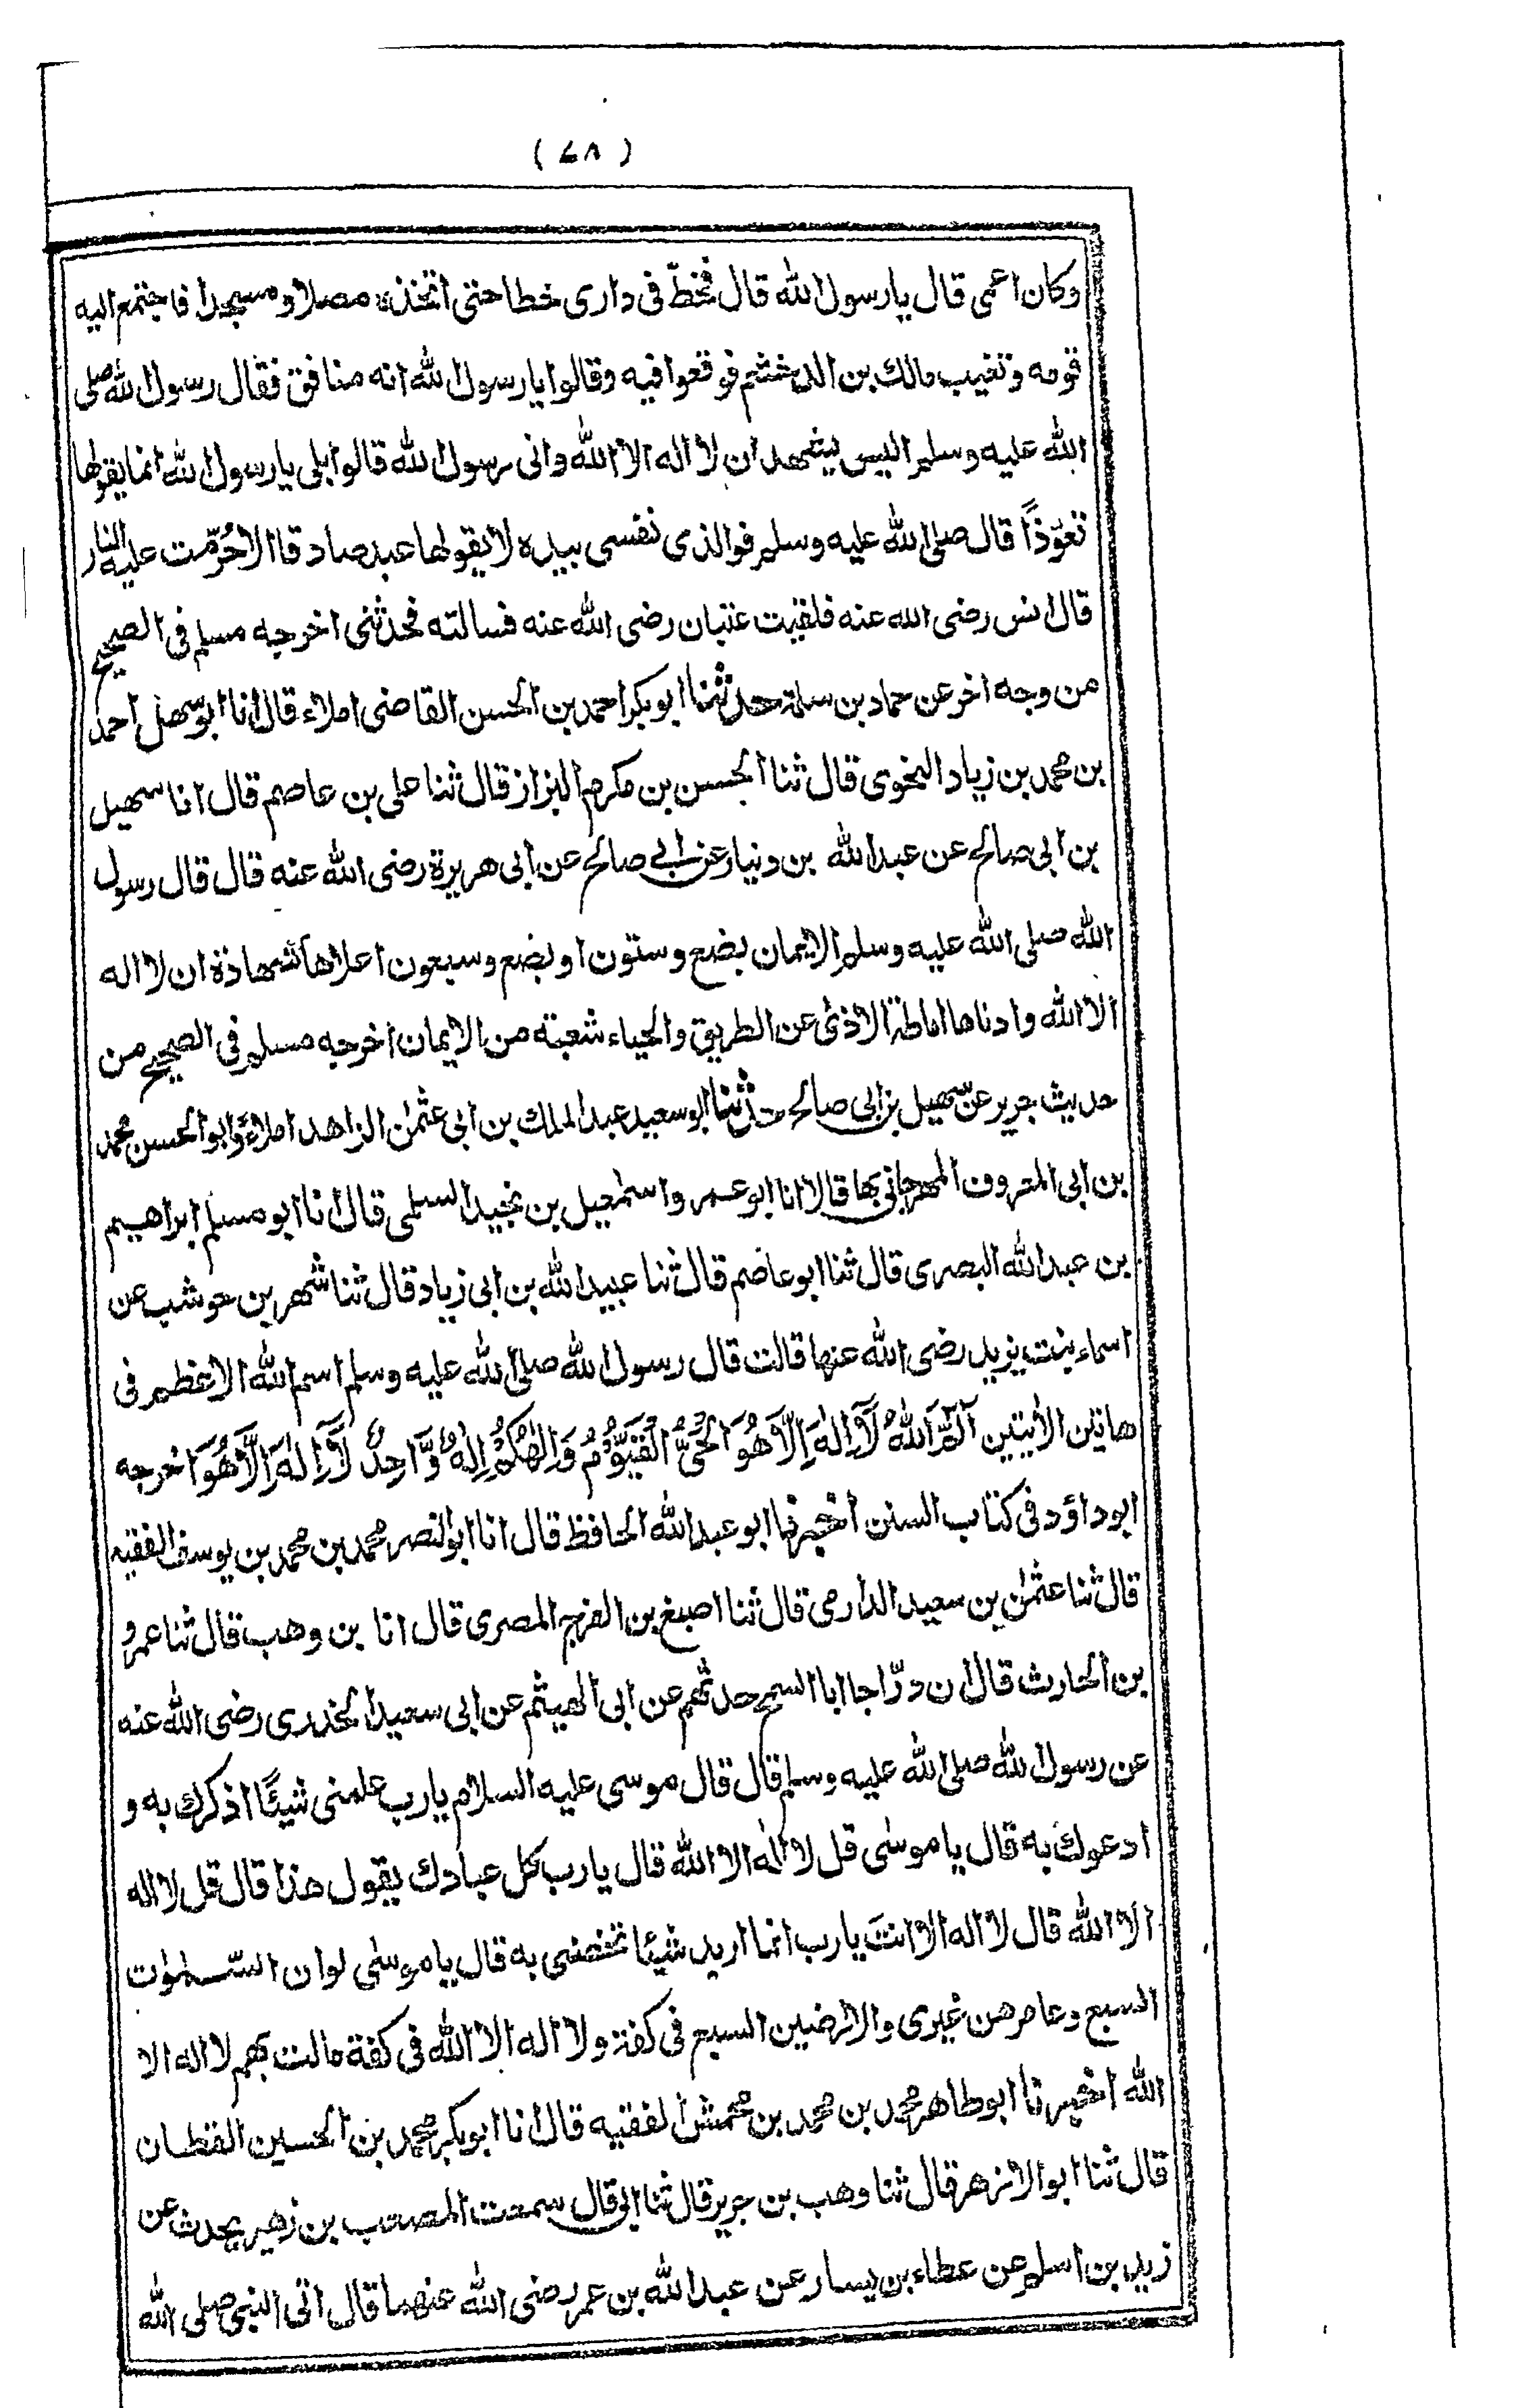 (٧٨)
وكان اعمى قال يا رسول الله قال فخطّ فى دارى خطا حتى اتخذه مصلا ومسجدا فاجتمع اليه
قومه وتغيب مالك بن الدخشم فوقعوا فيه وقالوا يا رسول الله انه منافق فقال رسول الله صلى
الله عليه وسلم اليس يشهد ان لا اله الا الله وانى رسول الله قالوا بلى يا رسول الله انما يقولها
تعوّذاً قال صلى الله عليه وسلم فوالذى نفسى بيده لا يقولها عبد صادقا الا حُرّمت عليه النار
قال انس رضى الله عنه فلقيت عتبان رضى الله عنه فسالته فحدثنى اخرجه مسلم فى الصحيح
من وجه اخر عن حماد بن سلمة حدثنا ابو بكر احمد بن الحسن القاضى املاء قال انا ابو سهل احمد
بن محمد بن زياد النحوى قال ثنا الحسن بن مكرم البزاز قال ثنا على بن عاصم قال انا سهيل
بن ابى صالح عن عبد الله بن دنيار عن ابى صالح عن ابى هريرة رضى الله عنه قال قال رسول
الله صلى الله عليه وسلم الايمان بضع وستون او بضع وسبعون اعلاها شهادة ان لا اله
الا الله وادناها اماطة الاذى عن الطريق والحياء شعبة من الايمان اخرجه مسلم فى الصحيح من
حديث جرير عن سهيل بن ابى صالح حدثنا ابو سعيد عبد الملك بن ابى عثمٰن الزاهد املاءً وابو الحسن محمد
بن ابى المعروف المهرجانى بها قالا انا ابو عمرو اسمٰعيل بن نجيد السلمى قال انا ابو مسلم ابراهيم
بن عبد الله البصرى قال ثنا ابو عاصم قال ثنا عبيد الله بن ابى زياد قال ثنا شهر بن حوشب عن
اسماء بنت يزيد رضى الله عنها قالت قال رسول الله صلى الله عليه وسلم اسم الله الاعظم فى
هاتين الأيتين آلٓمّٓ اَللهُ لَآ اِلٰهَ اِلَّا هُوَ الْحَىُّ الْقَيُّوْمُ وَاِلٰهُكُمْ اِلٰهٌ وَّاحِدٌ لَآ اِلٰهَ اِلَّا هُوَ اخرجه
ابو داؤد فى كتاب السنن اخبرنا ابو عبد الله الحافظ قال انا ابو النصر محمد بن محمد بن يوسف الفقيه
قال ثنا عثمٰن بن سعيد الدارمى قال ثنا اصبغ بن الفرج المصرى قال انا بن وهب قال ثنا عمرو
بن الحارث قال ان درّاجا ابا السمح حدثهم عن ابى الهيثم عن ابى سعيد الخدرى رضى الله عنه
عن رسول الله صلى الله عليه وسلم قال قال موسى عليه السلام يا رب علمنى شيئًا اذكرك به و
ادعوك به قال يا موسٰى قل لا اله الا الله قال يا رب كل عبادك يقول هذا قال قل لا اله
الا الله قال لا اله الا انتَ يا رب انما اريد شيئا تخصنى به قال يا موسٰى لو ان السّمٰوٰت
السبع وعامرهن غيرى والارضين السبع فى كفة ولا اله الا الله فى كفة مالت بهم لا اله الا
الله اخبرنا ابو طاهر محمد بن محمد بن محمش الفقيه قال انا ابو بكر محمد بن الحسين القطان
قال ثنا ابو الازهر قال ثنا وهب بن جرير قال ثنا ابى قال سمعت المصعب بن زهير يحدث عن
زيد بن اسلم عن عطاء بن يسار عن عبد الله بن عمر رضى الله عنهما قال اتى النبى صلى الله